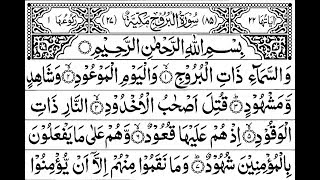 اٰيَاتُهَا ٢٢ (٨٥) سُوْرَةُ الْبُرُوْجِ مَكِّيَّةٌ (٢٧) رُكُوْعُهَا ١
بِسْمِ اللّٰهِ الرَّحْمٰنِ الرَّحِيْمِ
وَالسَّمَآءِ ذَاتِ الْبُرُوْجِ ۝١ وَالْيَوْمِ الْمَوْعُوْدِ ۝٢ وَشَاهِدٍ
وَّمَشْهُوْدٍ ۝٣ قُتِلَ اَصْحٰبُ الْاُخْدُوْدِ ۝٤ النَّارِ ذَاتِ
الْوَقُوْدِ ۝٥ اِذْ هُمْ عَلَيْهَا قُعُوْدٌ ۝٦ وَّهُمْ عَلٰى مَا يَفْعَلُوْنَ
بِالْمُؤْمِنِيْنَ شُهُوْدٌ ۝٧ وَمَا نَقَمُوْا مِنْهُمْ اِلَّآ اَنْ يُّؤْمِنُوْا